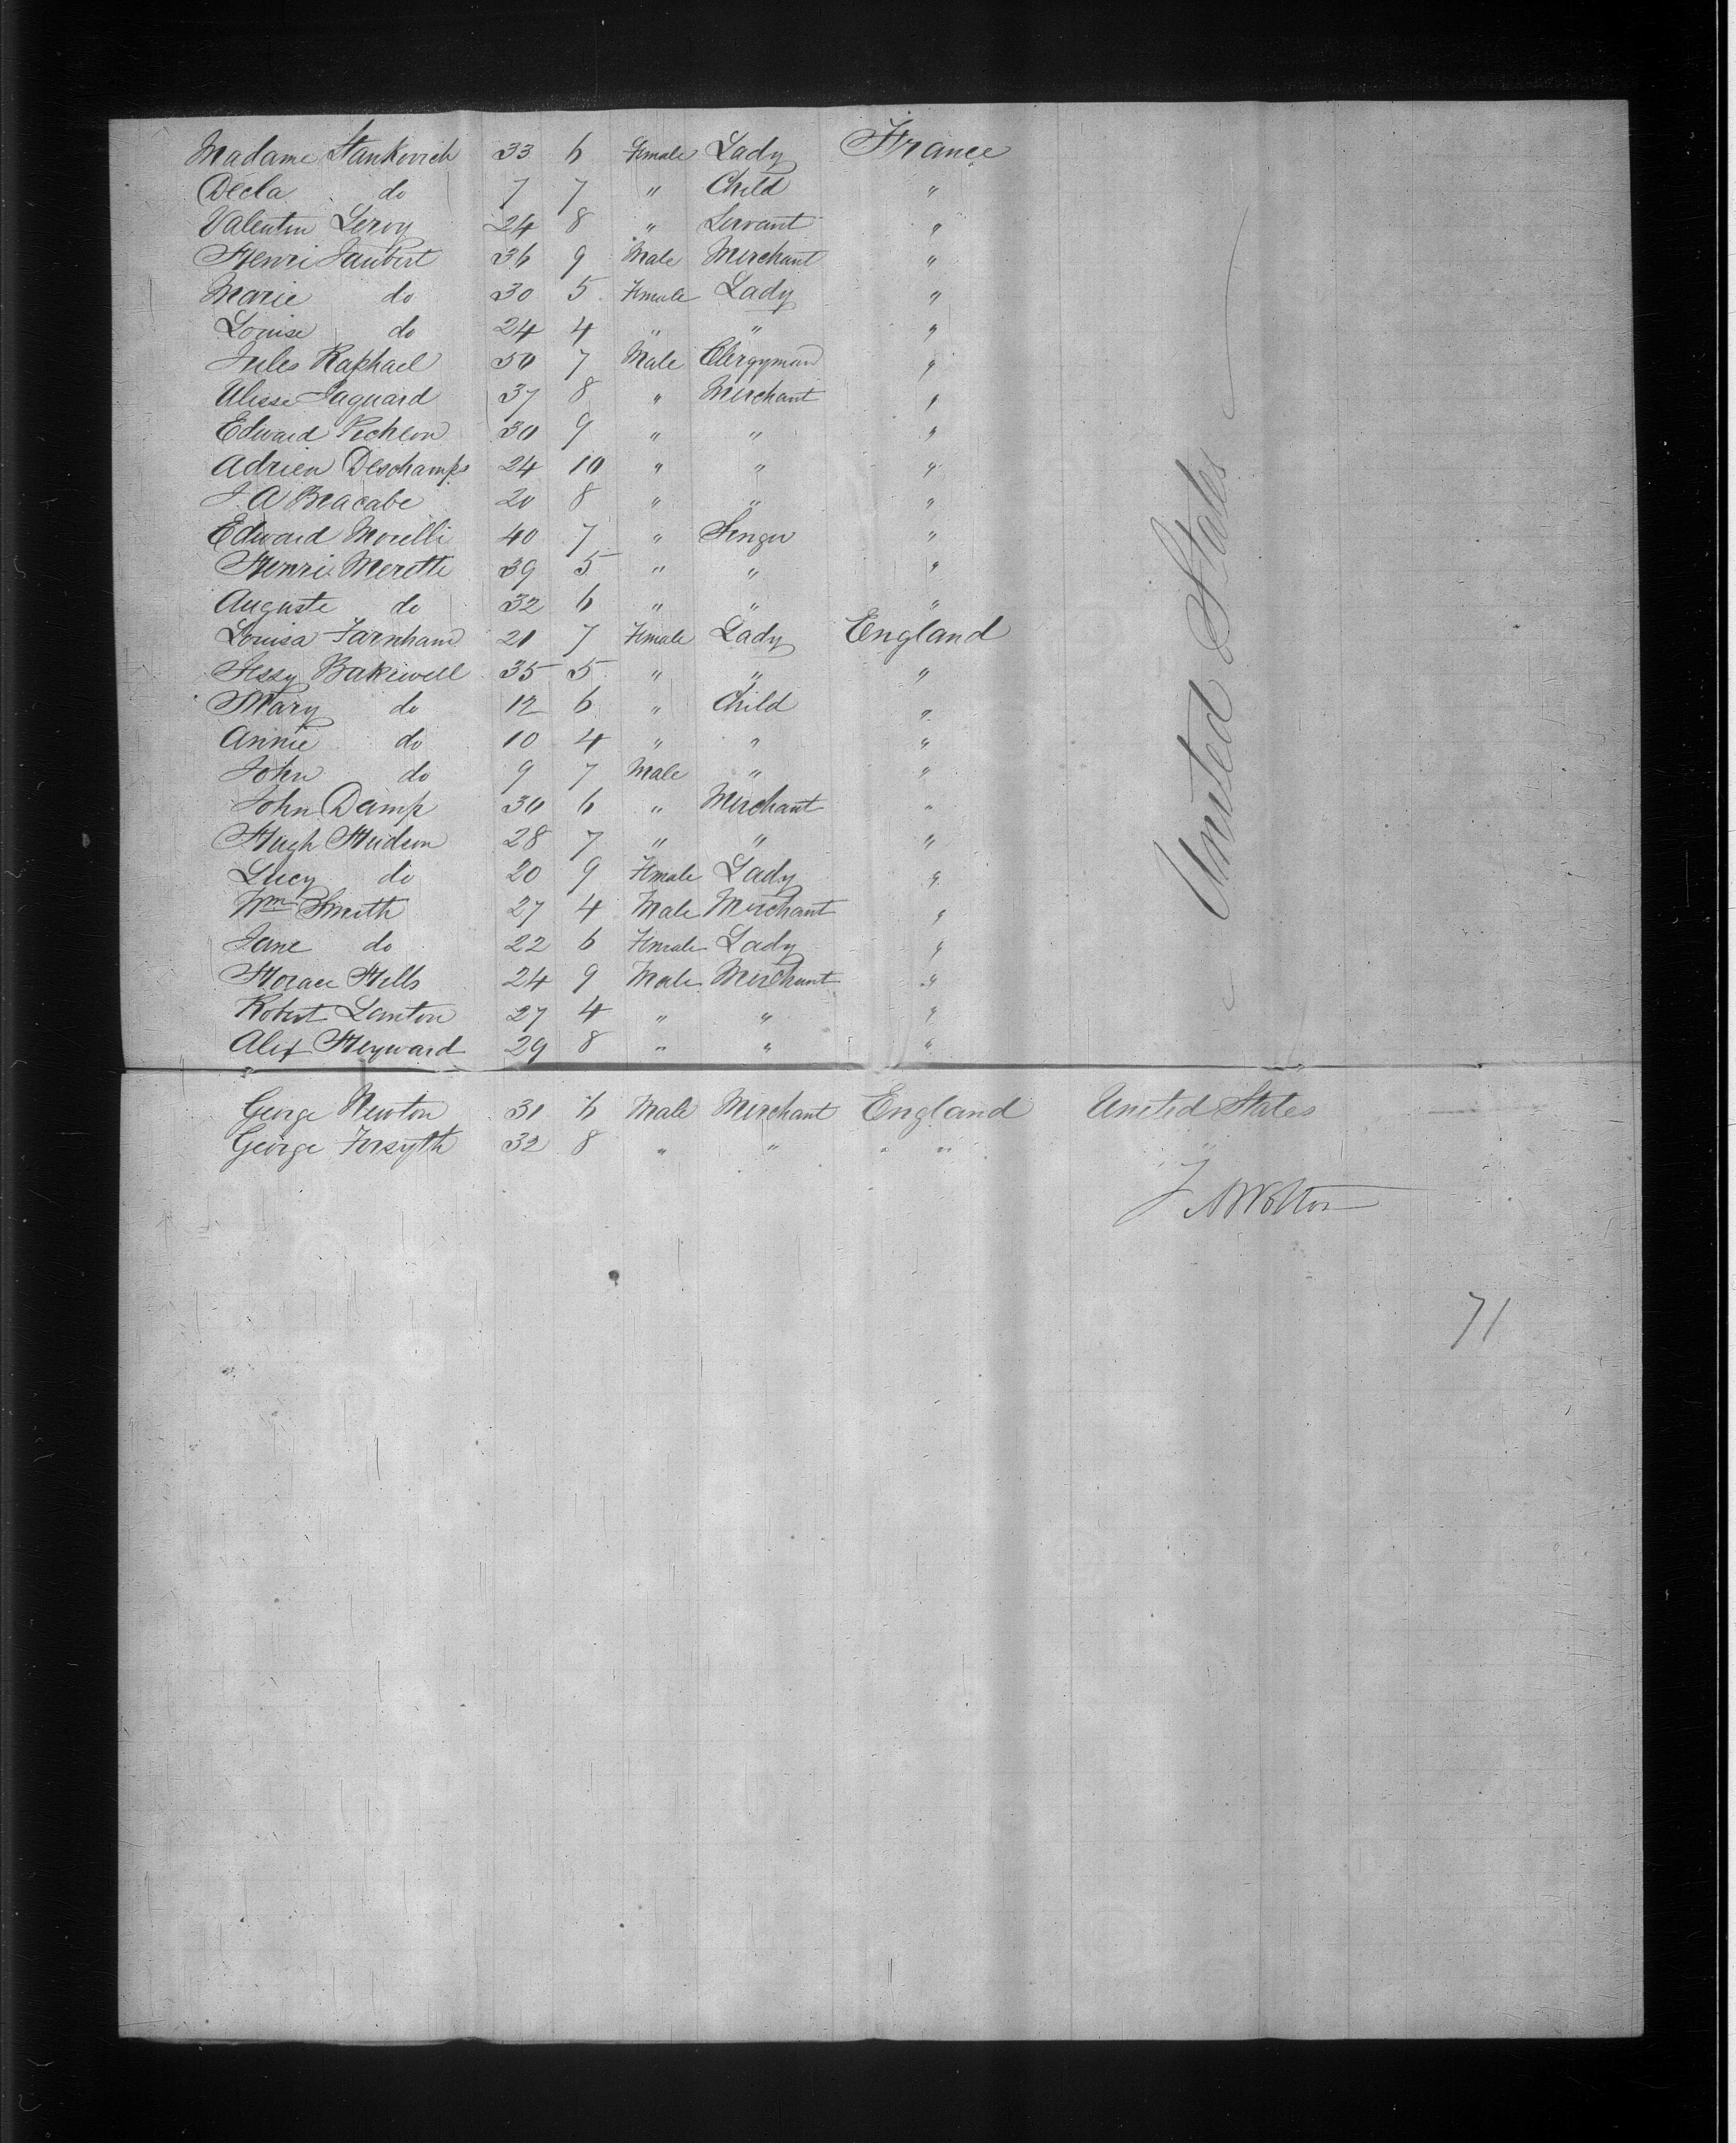 Madame Stankovich 33 6 Female Lady France
Decla do 7 7 " Child "
Valentin Leroy 24 8 " Servant "
Henri Jaubert 36 9 Male Merchant "
Marie do 30 5 Female Lady "
Louise do 24 4 " " "
Jules Raphael 50 7 Male Clergyman "
Ulisse Jaguard 37 8 " Merchant "
Edward Pichlon 30 9 " " "
Adrien Deschamps 24 10 " " "
J. A Macabe 20 8 " " "
Edward Morelli 40 7 " Singer "
Henri Merette 39 5 " " "
Auguste do 32 6 " " "
Louisa Farnham 21 7 Female Lady England
Jessy Bakewell 35 5 " " "
Mary do 12 6 " Child "
Annie do 10 4 " " "
John do 9 7 Male " "
John Damp 30 6 " Merchant "
Hugh Hudson 28 7 " " "
Lucy do 20 9 Female Lady "
Wm Smith 27 4 Male Merchant "
Jane do 22 6 Female Lady "
Horace Hills 24 9 Male Merchant "
Robert Lanton 27 4 " " "
Alex Heyward 29 8 " " "
United States
George Newton 31 6 Male Merchant England United States
George Forsyth 32 8 " " " "
J A Wotton
71